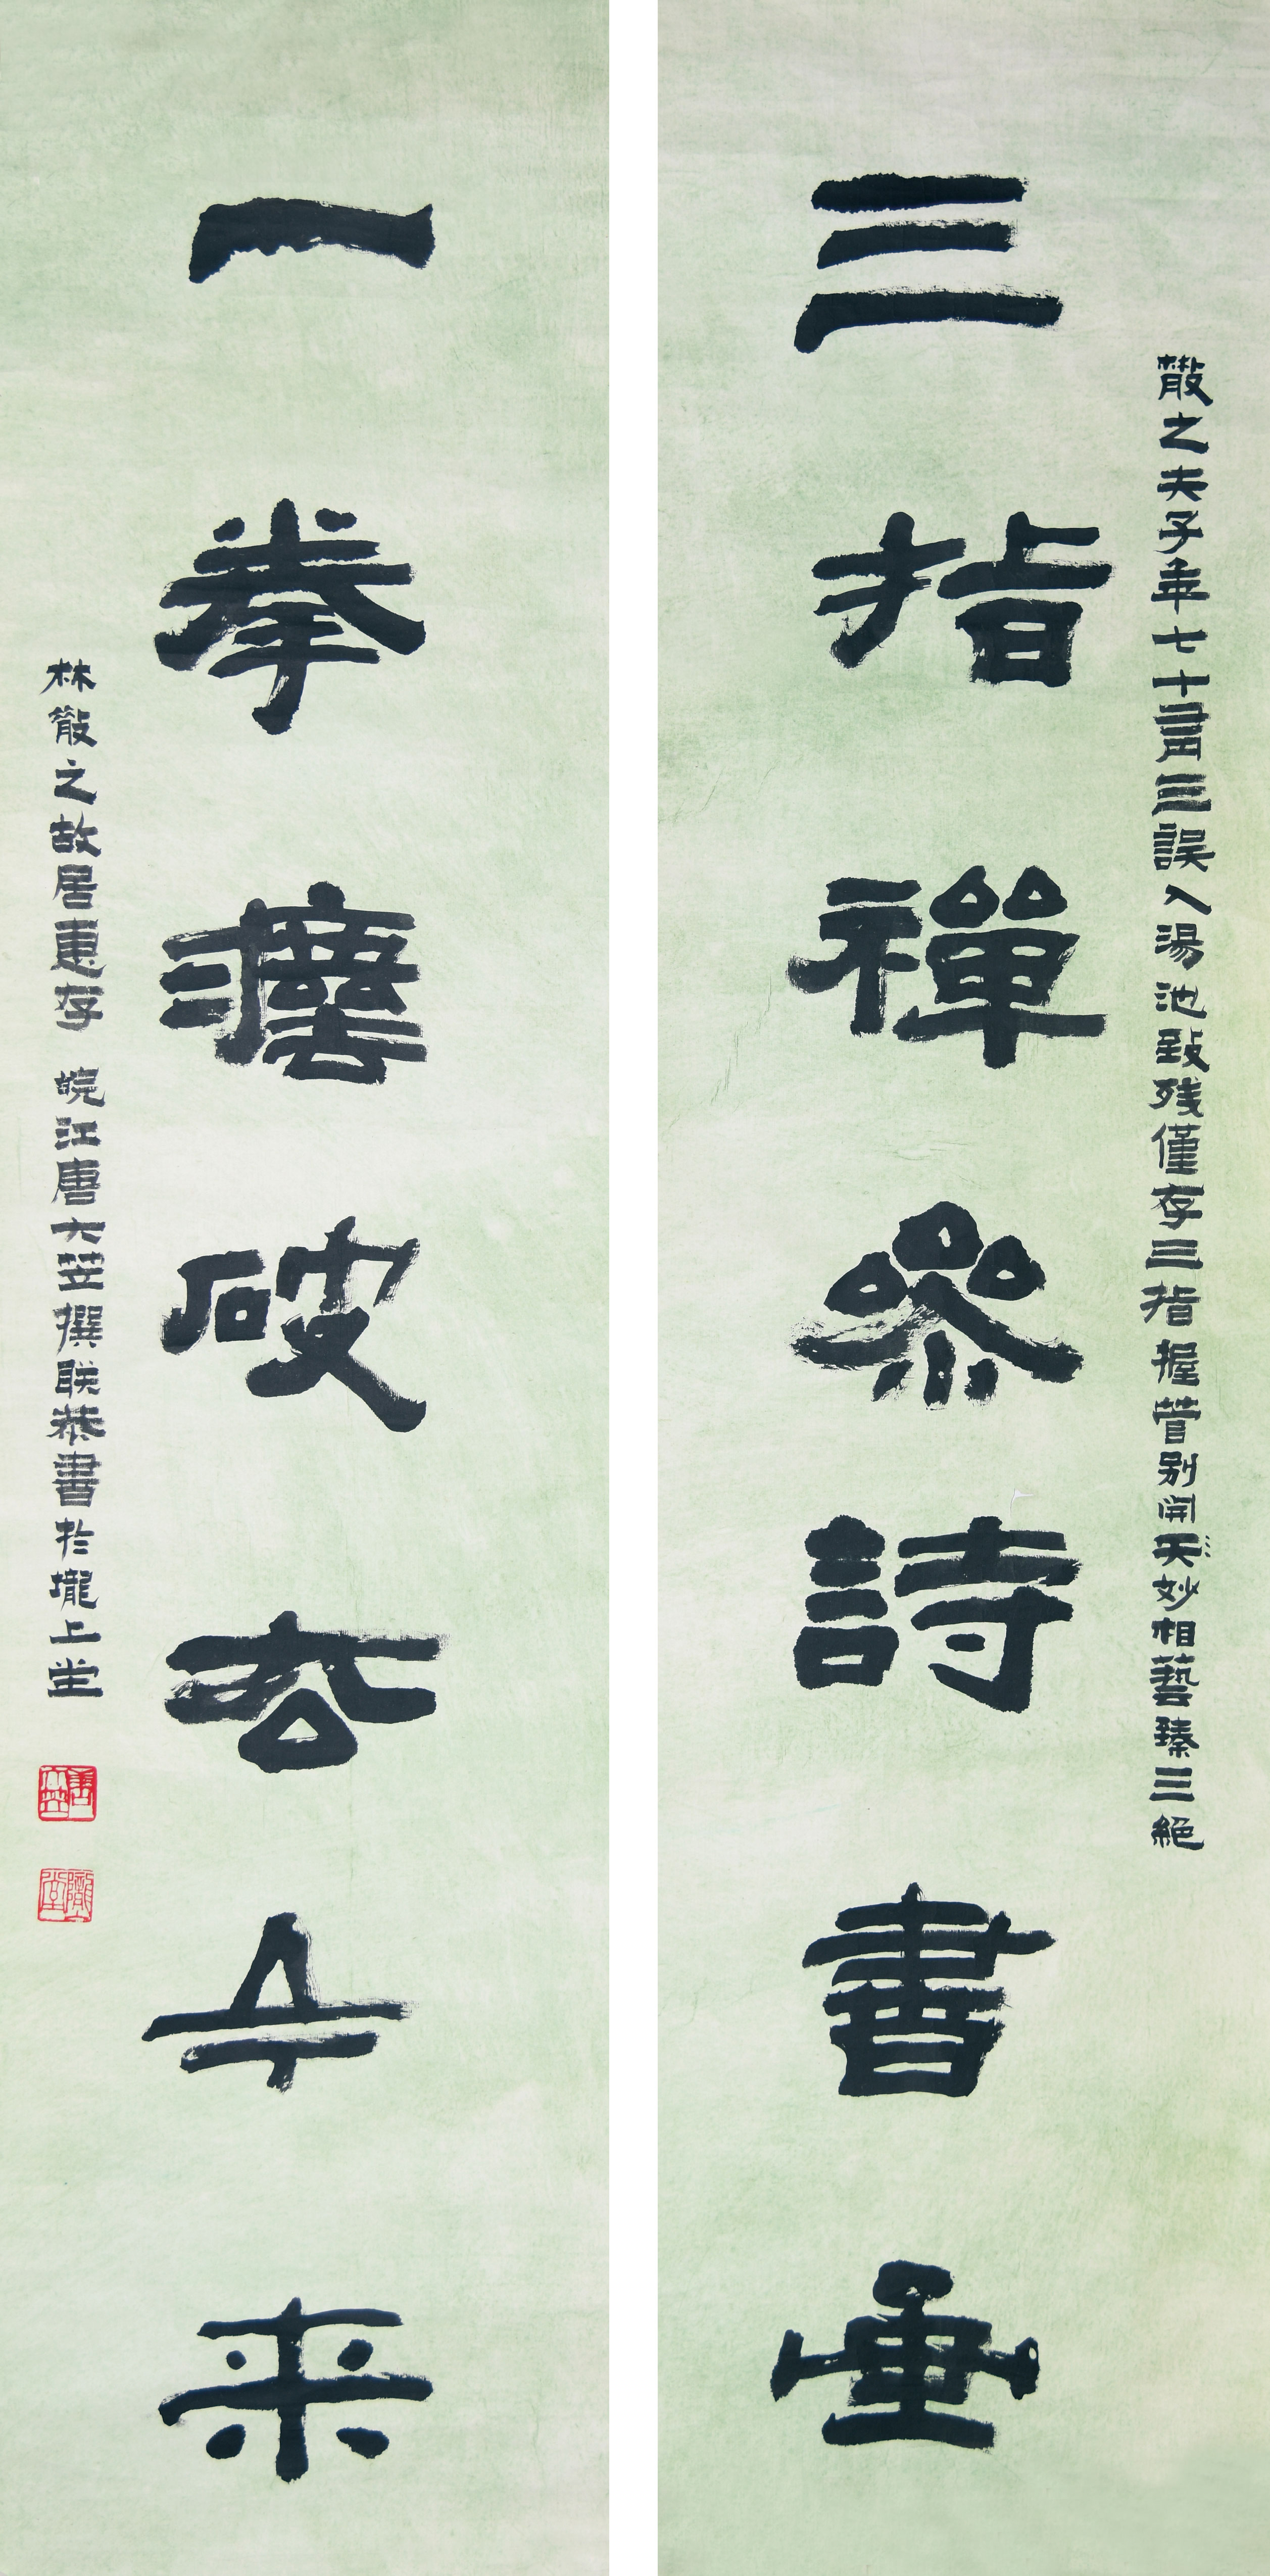 散之夫子年七十三誤入湯池致残僅存三指握管别開天妙相藝臻三絕
三指禪參詩書畫
一拳破去今来
林散之故居惠存 皖江唐大笠撰联恭書於壠上堂
唐大笠